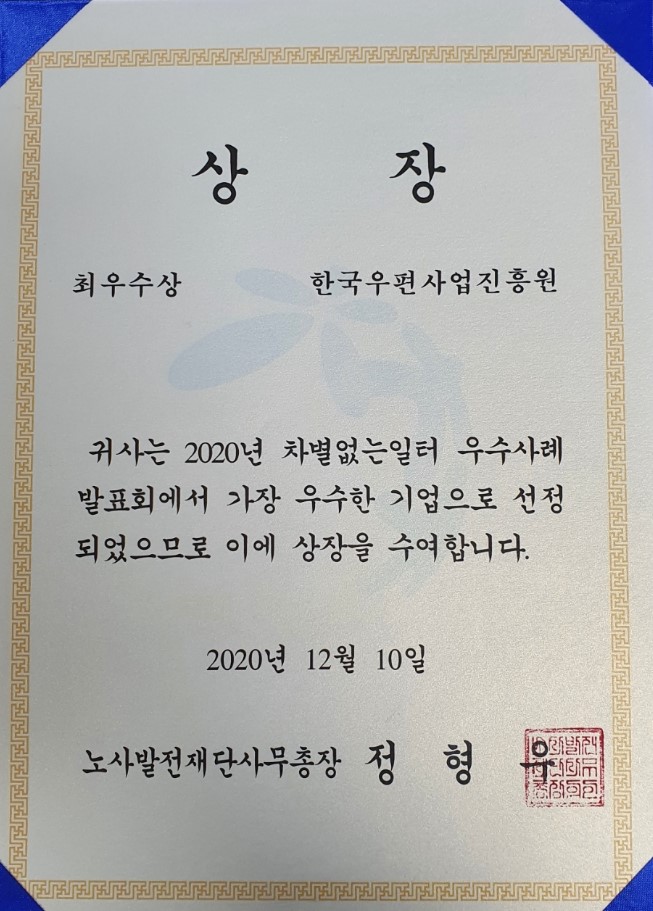 상 장
최우수상 한국우편사업진흥원
귀사는 2020년 차별없는일터 우수사례
발표회에서 가장 우수한 기업으로 선정
되었으므로 이에 상장을 수여합니다.
2020년 12월 10일
노사발전재단사무총장 정 형 우